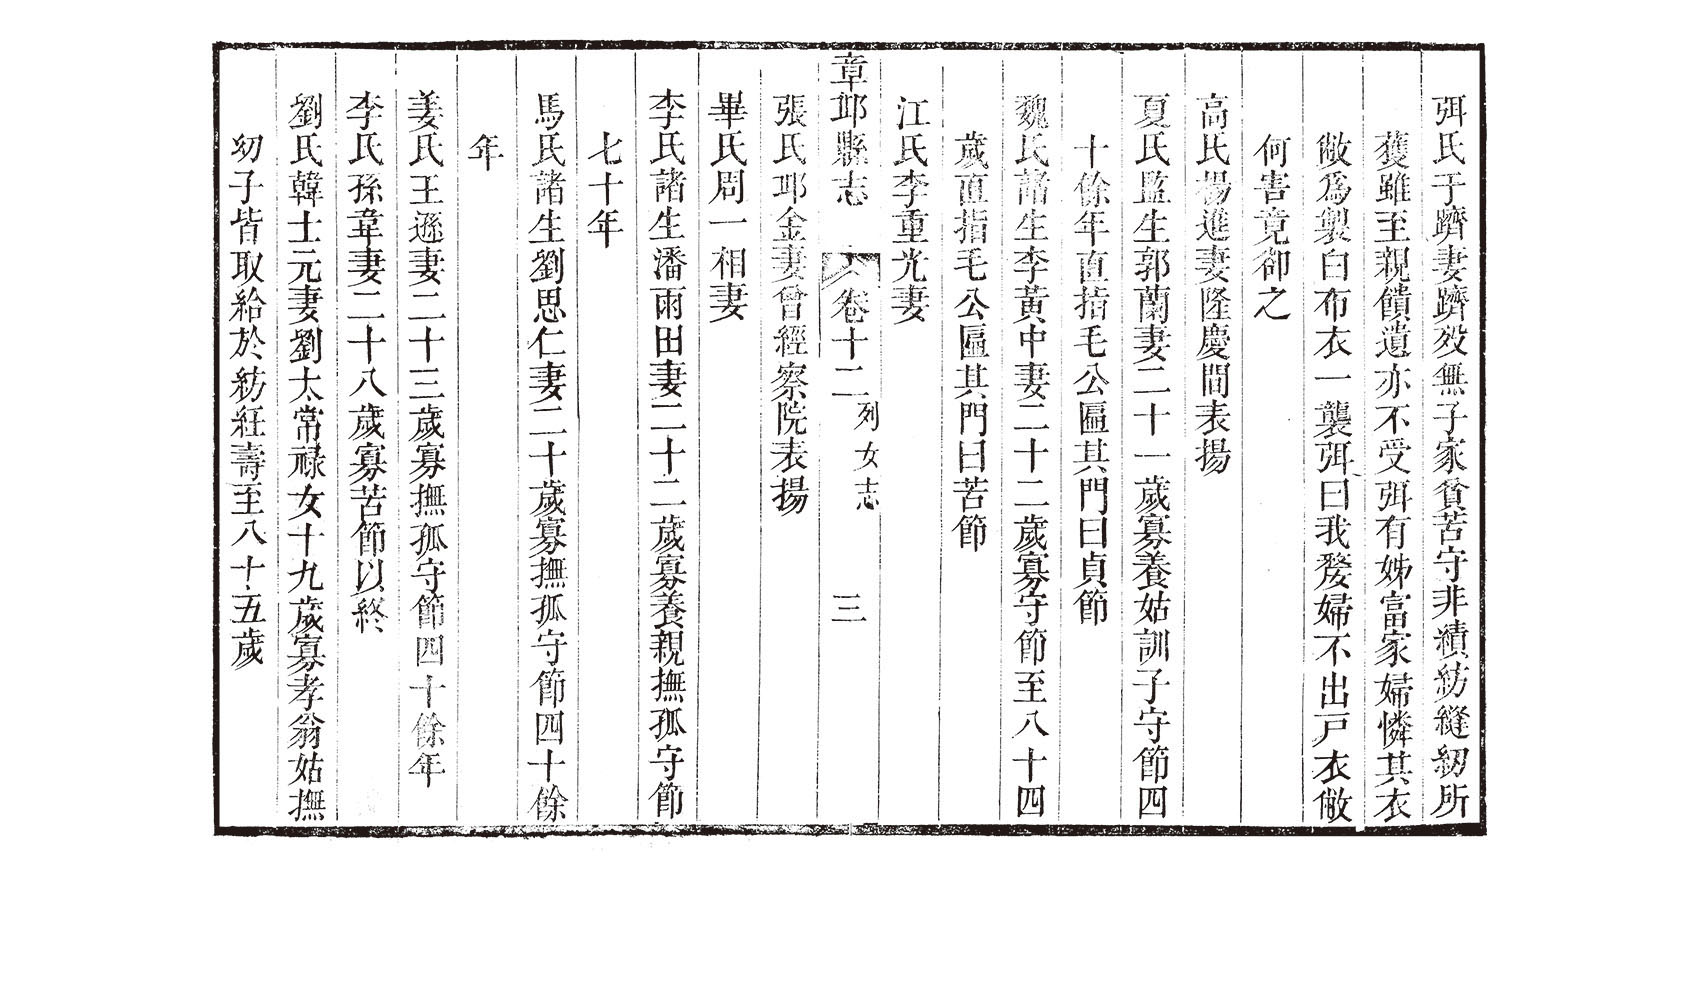 弭氏于躋妻躋歿無子家貧苦守非績紡縫紉所
獲雖至親饋遺亦不受弭有姊富家婦憐其衣
敝爲製白布衣一襲弭曰我嫠婦不出戸衣敝
何害竟卻之
高氏楊進妻隆慶間表揚
夏氏監生郭蘭妻二十一歲寡養姑訓子守節四
十餘年直指毛公匾其門曰貞節
魏氏諸生李黃中妻二十二歲寡守節至八十四
歲直指毛公匾其門曰苦節
江氏李重光妻
章邱縣志 卷十二 列女志 三
張氏邱金妻曾經察院表揚
畢氏周一相妻
李氏諸生潘雨田妻二十二歲寡養親撫孤守節
七十年
馬氏諸生劉思仁妻二十歲寡撫孤守節四十餘
年
姜氏王遜妻二十三歲寡撫孤守節四十餘年
李氏孫韋妻二十八歲寡苦節以終
劉氏韓士元妻劉太常祿女十九歲寡孝翁姑撫
幼子皆取給於紡紝壽至八十五歲